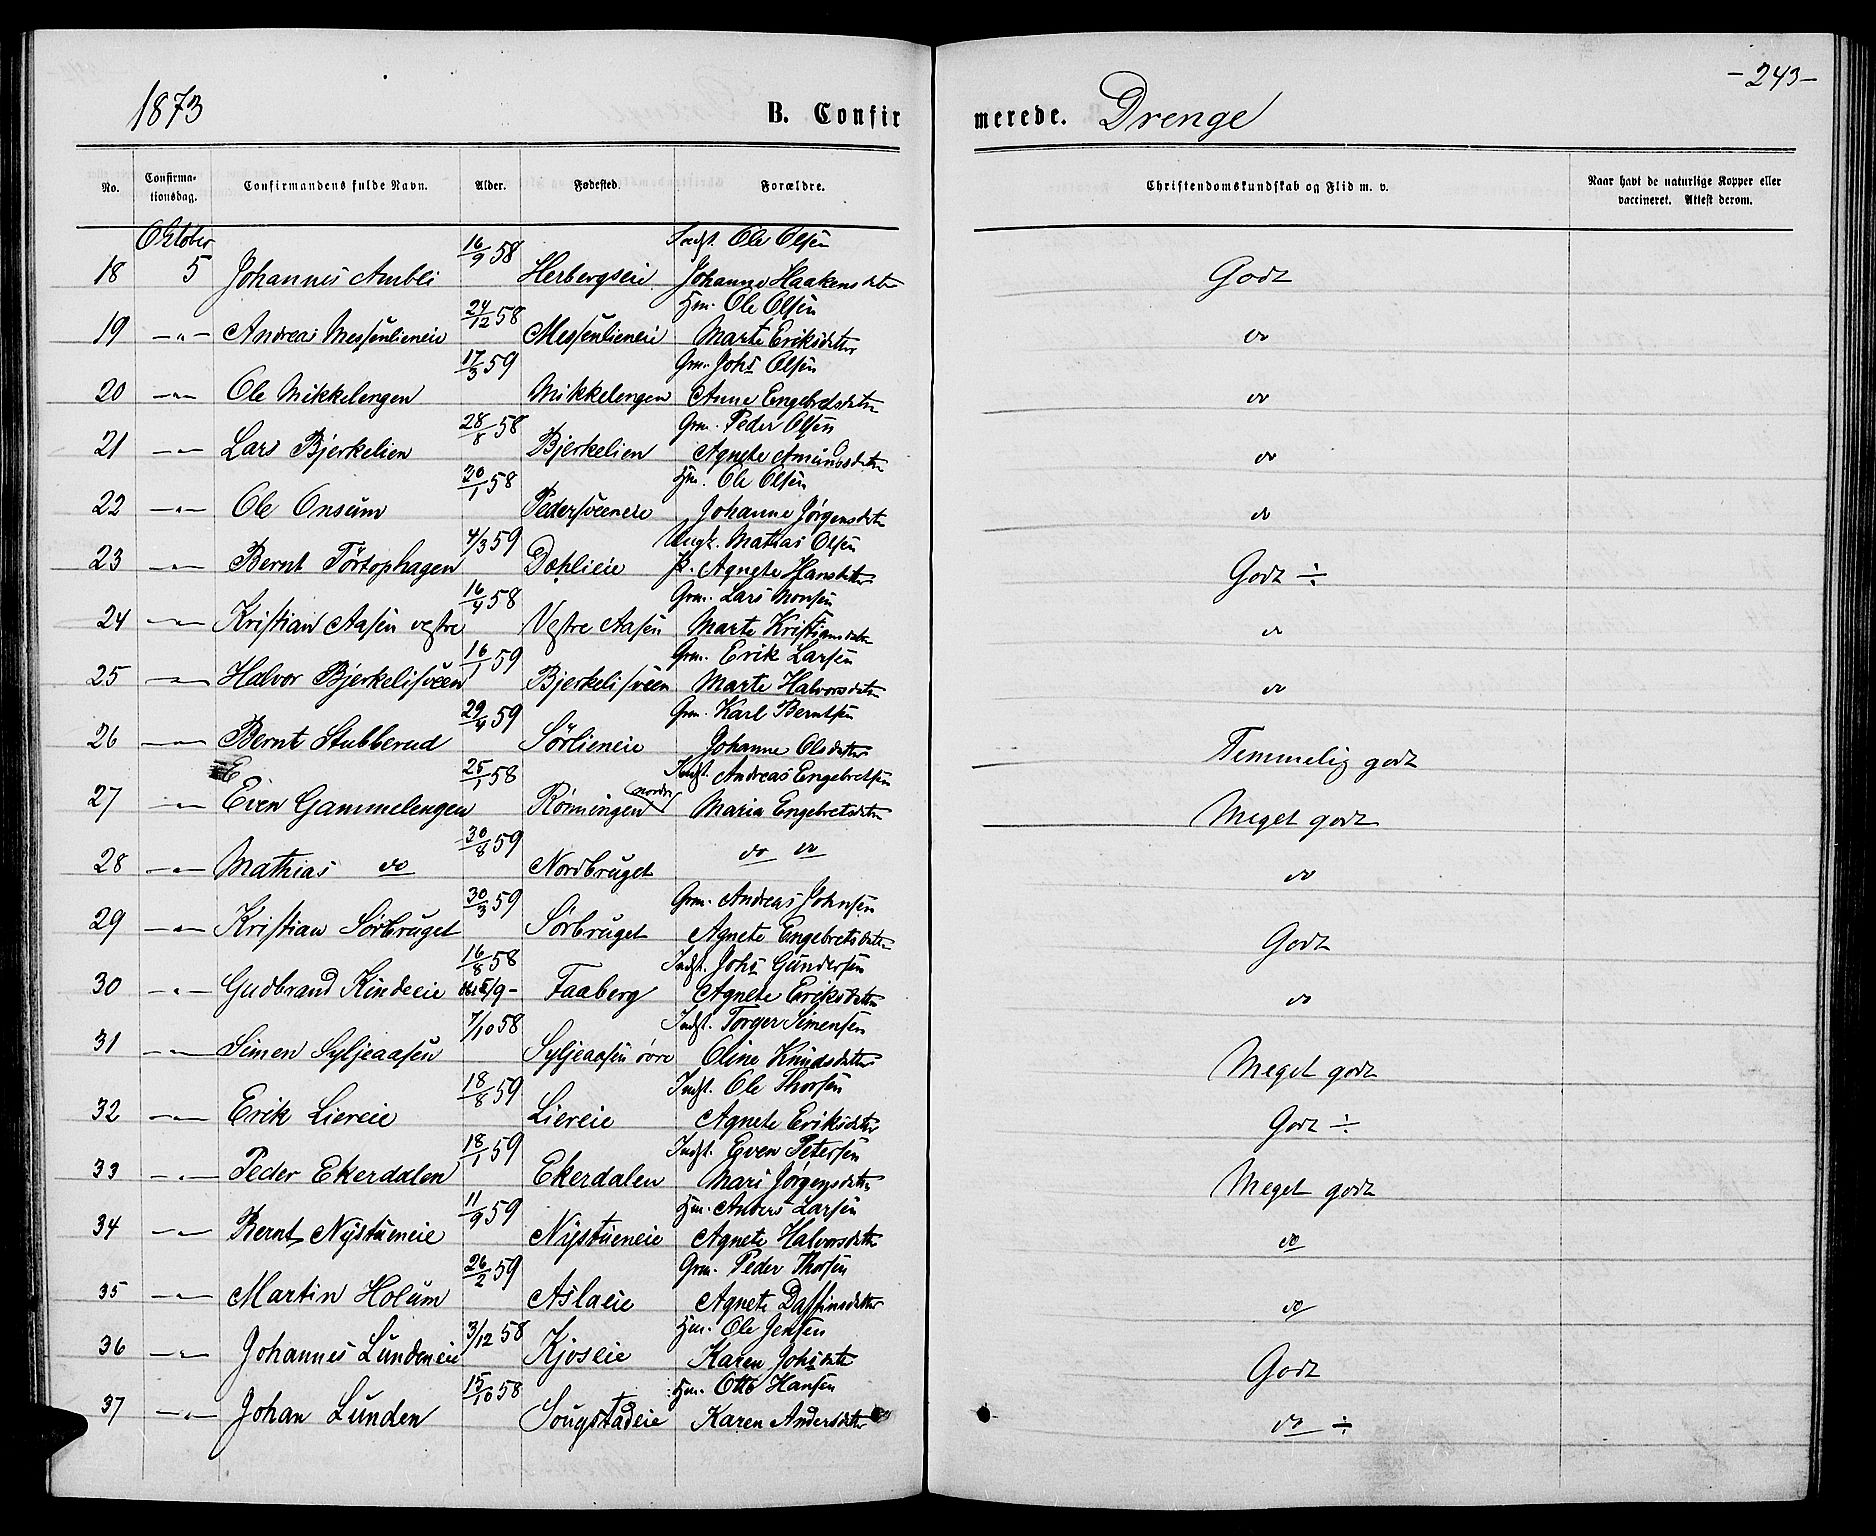 1873 B. Confirmerede. Drenge -243-
No. Confirmationsdag. Confirmandens fulde Navn. Alder. Fødested. Forældre. Christendomskundskab og Flid m. v. Naar havt de naturlige Kopper eller vaccineret. Attest derom.
Oktober 16/9 58 Indst. Ole Olsen
18 5 Johannes Ambli Herbergseie Johanne Haakensdatr Godt
24/12 58 Hm. Ole Olsen
19 -"- Andreas Messenlieneie Messenlieneie Marte Eriksdatter do
17/3 59 Grm. Johs Olsen
20 -"- Ole Mikkelengen Mikkelengen Anne Engebretsdatr do
28/8 58 Grm. Peder Olsen
21 -"- Lars Bjerkelien Bjerkelien Agnete Amundsdatr do
30/1 58 Hm. Ole Olsen
22 -"- Ole Onsum Pedersveeneie Johanne Jørgensdatr do
4/3 59 Ungk. Mathias Olsen
23 -"- Bernt Törtophagen Dæhlieie P. Agnete Hansdatter Godt ÷
16/4 58 Grm. Lars Monsen
24 -"- Kristian Aasen vestre Vestre Aasen Marte Kristiansdatr do
16/1 59 Grm. Erik Larsen
25 -"- Halvor Bjerkelisveen Bjerkelisveen Marte Halvorsdatr do
29/4 59 Grm. Karl Berntsen
26 -"- Bernt Stubberud Sørlieneie Johanne Olsdatter Temmelig godt
25/1 58 Indst. Andreas Engebretsen
27 -"- Even Gammelengen Rönningen nordre Maria Engebretsdatr Meget godt
30/8 59
28 -"- Mathias do Nordbruget do do do
30/3 59 Grm. Andreas Johnsen
29 -"- Kristian Sørbruget Sørbruget Agnete Engebretsdatr Godt
16/8 58 Indst. Johs Gundersen
30 -"- Gudbrand Kindeeie 5/9- Faaberg Agnete Eriksdatter do
7/10 58 Indst. Torger Simensen
31 -"- Simen Syljeaasen Syljeaasen övre Oline Knudsdatter Meget godt
18/8 59 Indst. Ole Thorsen
32 -"- Erik Liereie Liereie Agnete Eriksdatter Godt ÷
18/1 59 Indst. Even Petersen
33 -"- Peder Ekerdalen Ekerdalen Mari Jørgensdatr Meget godt
11/9 59 Hm. Anders Larsen
34 -"- Bernt Nystueneie Nystueneie Agnete Halvorsdatr do
26/2 59 Grm. Peder Thorsen
35 -"- Martin Holum Aslaeie Agnete Daffinsdatter do
3/12 58 Hm. Ole Jensen
36 -"- Johannes Lundeneie Kjoseie Karen Johsdatr Godt
15/10 58 Hm. Otto Hansen
37 -"- Johan Lunden Sougstadeie Karen Andersdatr do ÷